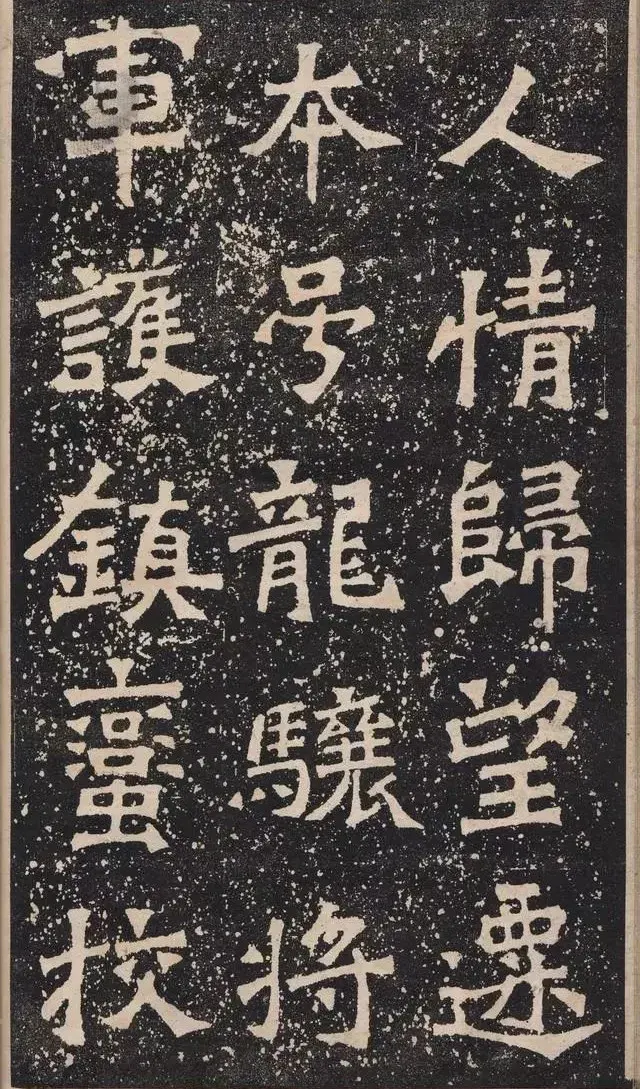 人情歸望遷
本号龍驤将
軍護鎮蠻校